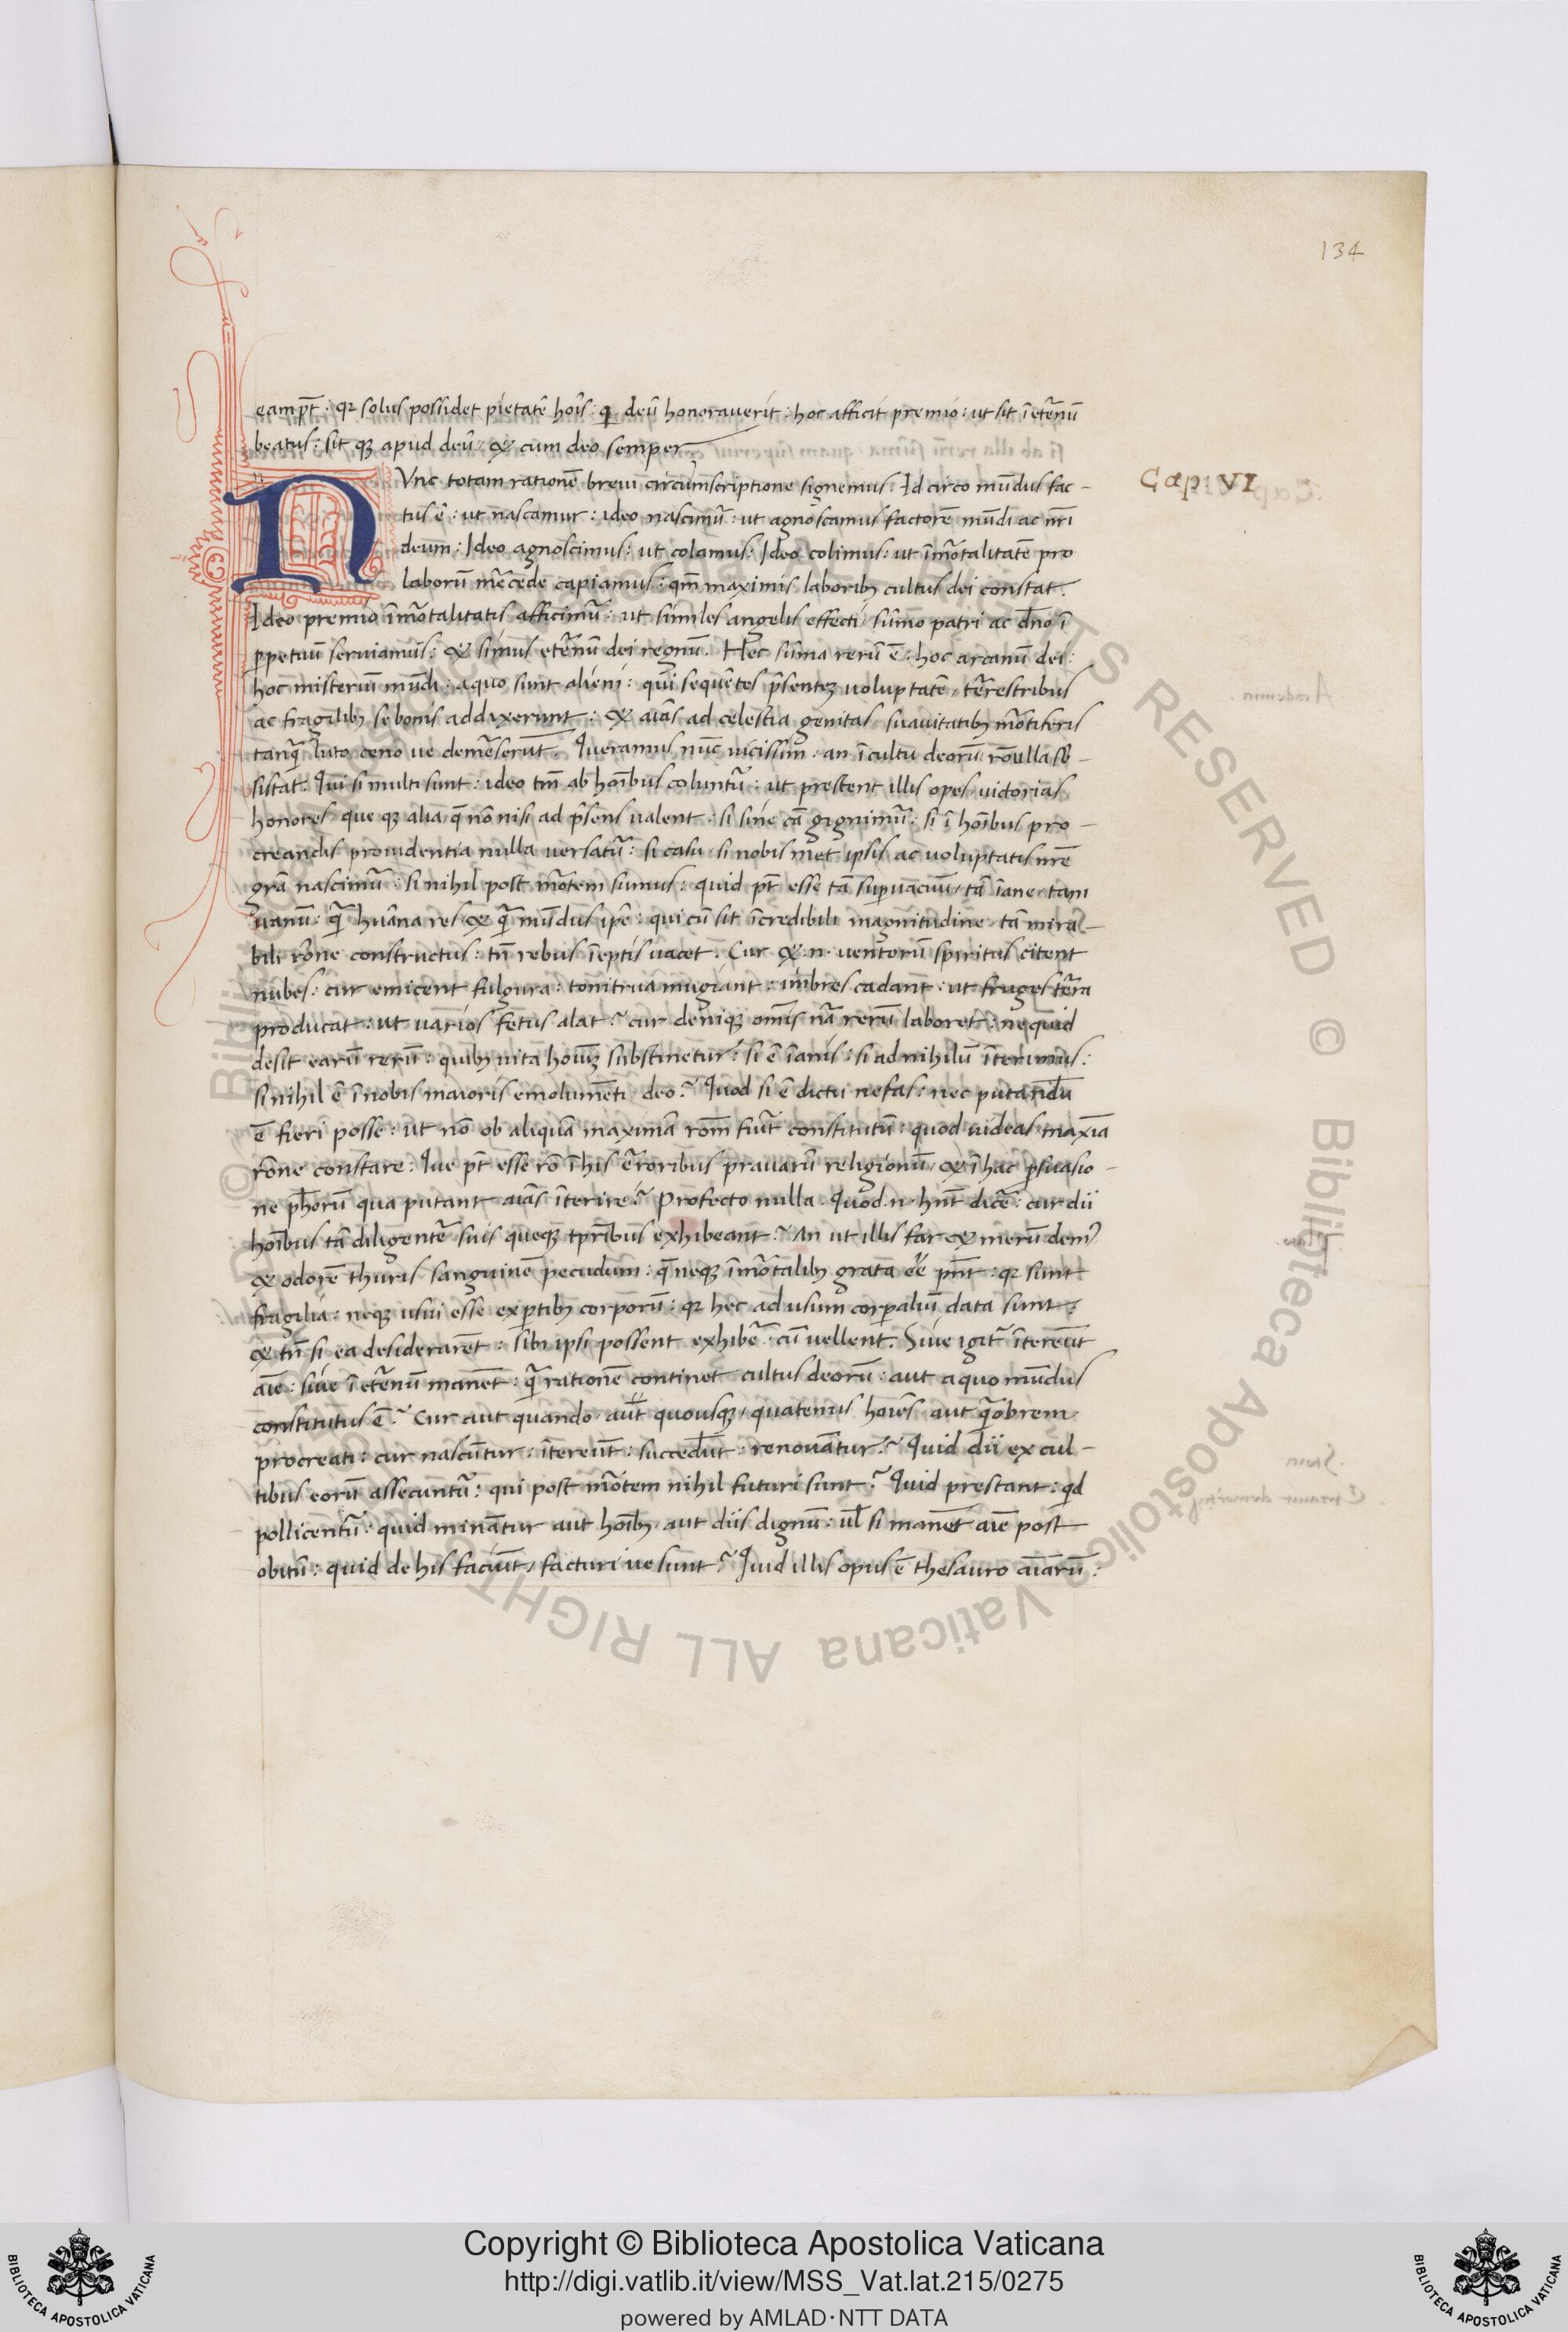 134
eam pt̄: qꝛ solus possidet pietatē hoīs: q deū honoraverit: hoc afficit premio: ut sit ī et̄nū
beatus: sit qꝫ apud deū: & cum deo semper
Cap: VI
NVnc totam rationē breui circumscriptione signemus. Id circo mūdus fac-
tus ē: ut nascamur: ideo nascimur̄: ut agnoscamus factorē mūdi ac nr̄i
deum: Ideo agnoscimus: ut colamus: Ideo colimus: ut īmortalitatē pro
laborū mercede capiamus: qm̄ maximis laboribꝫ cultus dei constat.
Ideo premio īmortalitatis afficimur̄: ut similes angelis effecti sūmo patri ac dn̄o ī
ꝑpetuū seruiamus: & simus et̄nū dei regnū. Hec sūma rerū ē: hoc arcanū dei:
hoc misterium mūdi: a quo sunt alieni: qui sequētes p̄sentez uoluptatē, terrestribus
ac fragilibꝫ se bonis addixerunt: & aīas ad celestia genitas suauitatibꝫ mortiferis
tanq̄ luto ceno ue demerserūt. Queramus nūc uicissim an ī cultu deorū rō ulla sb-
sistat. Qui si multi sunt: ideo tm̄ ab hoībus coluntur̄: ut prestent illis opes uictorias
honores que qꝫ alia q̄ nō nisi ad p̄sens ualent: si sine cā gignimur̄: si ī hoībus pro-
creandis prouidentia nulla uersatur̄: si casu si nobis met ipsis ac uoluptatis nr̄e
grā nascimur̄: si nihil post mortem sumus: quid pt̄ esse tā suꝑuacuū, tā īane, tam
uanū: q̄ humana res & q̄ mūdus ip̄e: qui cū sit īcredibili magnitudine tā mira-
bili rōne constructus: tn̄ rebus īeptis uacet. Cur & .n. ventorū spiritus citent
nubes: cur emicent fulgura: tonitrua mugiant: imbres cadant: ut fruges terra
producat: ut uarios fetus alat? cur deniqꝫ omīs nā rerū laboret: ne quid
desit earū rerū: quibꝫ uita hoīuꝫ substinetur: si ē īanis: si ad nihilū īterimus:
si nihil ē ī nobis maioris emolumēti deo? Quod si ē dictu nefas: nec putandū
ē fieri posse: ut nō ob aliquā maximā rōm fuīt constitutū: quod uideas maxīa
rōne constare: Que pt̄ esse rō ī his erroribus prauarū religionū, & ī hac ꝑsuasio-
ne ph̄orū qua putant aīas īterire? Profecto nulla. Quod .n. hn̄t dicē: cur dii
hoībus tā diligenter̄ suis queqꝫ tp̄ribus exhibeant? An ut illis far & merū dem̄
& odorē thuris sanguinē pecudum: q̄ neqꝫ īmortalibꝫ grata ēē pn̄t: qꝛ sunt
fragilia: neqꝫ usui esse exꝑtibꝫ corporū: qꝛ hec ad usum corꝑaliū data sunt:
& tn̄ si ea desiderarēt: sibi ipsi possent exhibē: cū uellent. Siue igitr̄ ītereūt
aīe: siue ī et̄nū manēt: q̄ rationē continet cultus deorū: aut a quo mūdus
constitutus ē? Cur aut quando aut̄ quousqꝫ, quatenus hoīes aut q̄obrem
procreati: cur nascūtur: ītereūt: succedūt: renouātur? Quid dii ex cul-
tibus eorū assecuntur̄: qui post mortem nihil futuri sunt? Quid prestant: qd
pollicentur̄: quid minātur aut hoībꝫ aut diis dignū: ul̄ si manēt aīe post
obitū: quid de his faciūt, facturi ue sunt? Quid illis opus ē thesauro aīarū:
Copyright © Biblioteca Apostolica Vaticana
http://digi.vatlib.it/view/MSS_Vat.lat.215/0275
powered by AMLAD·NTT DATA
BIBLIOTECA APOSTOLICA VATICANA
BIBLIOTECA APOSTOLICA VATICANA
© Biblioteca Apostolica Vaticana ALL RIGHTS RESERVED